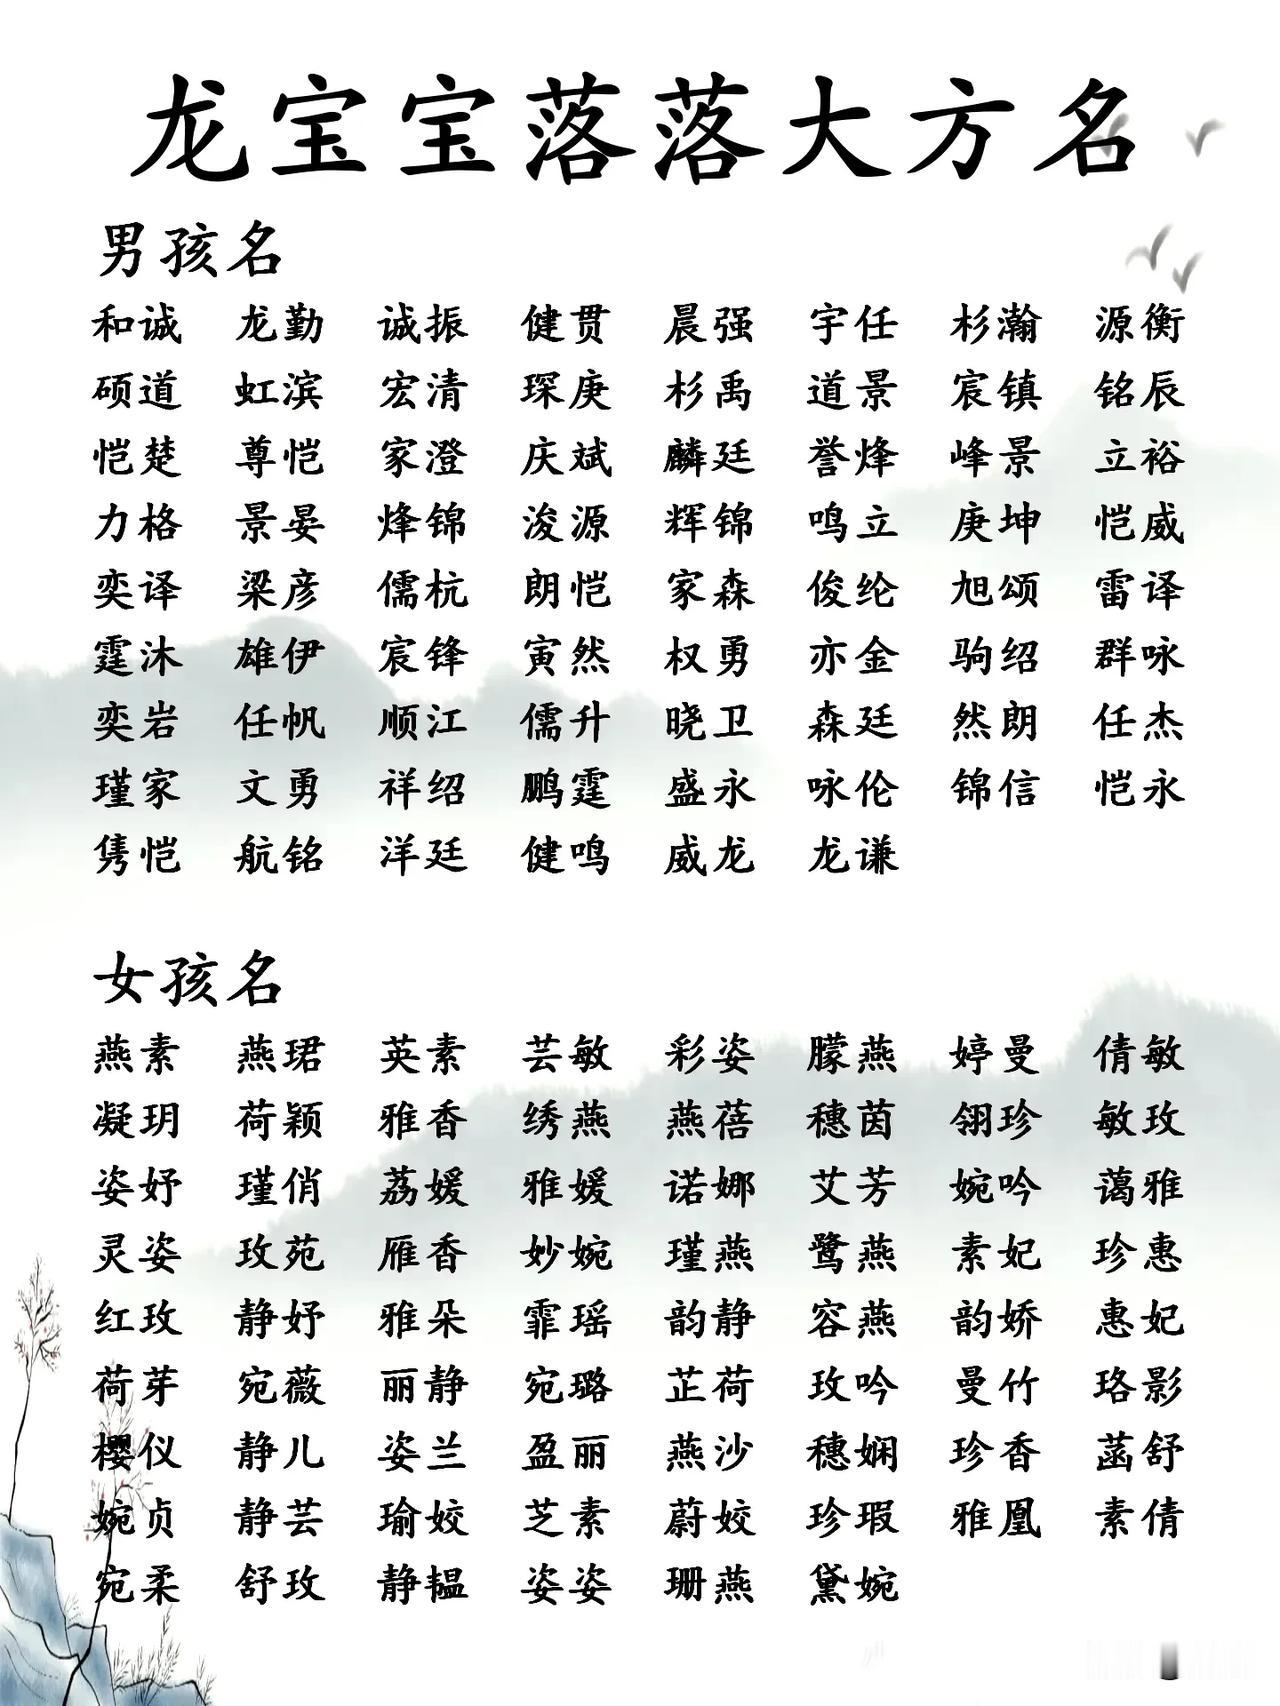 龙宝宝落落大方名
男孩名
和诚 龙勤 诚振 健贯 晨强 宇任 杉瀚 源衡
硕道 虹滨 宏清 琛庚 杉禹 道景 宸镇 铭辰
恺楚 尊恺 家澄 庆斌 麟廷 誉烽 峰景 立裕
力格 景晏 烽锦 浚源 辉锦 鸣立 庚坤 恺威
奕译 梁彦 儒杭 朗恺 家森 俊纶 旭颂 雷译
霆沐 雄伊 宸锋 寅然 权勇 亦金 驹绍 群咏
奕岩 任帆 顺江 儒升 晓卫 森廷 然朗 任杰
瑾家 文勇 祥绍 鹏霆 盛永 咏伦 锦信 恺永
隽恺 航铭 洋廷 健鸣 威龙 龙谦
女孩名
燕素 燕珺 英素 芸敏 彩姿 朦燕 婷曼 倩敏
凝玥 荷颖 雅香 绣燕 燕蓓 穗茵 翎珍 敏玫
姿妤 瑾俏 荔媛 雅媛 诺娜 艾芳 婉吟 蔼雅
灵姿 玫苑 雁香 妙婉 瑾燕 鹭燕 素妃 珍惠
红玫 静妤 雅朵 霏瑶 韵静 容燕 韵娇 惠妃
荷芽 宛薇 丽静 宛璐 芷荷 玫吟 曼竹 珞影
樱仪 静儿 姿兰 盈丽 燕沙 穗娴 珍香 菡舒
婉贞 静芸 瑜姣 芝素 蔚姣 珍瑕 雅凰 素倩
宛柔 舒玫 静韫 姿姿 珊燕 黛婉